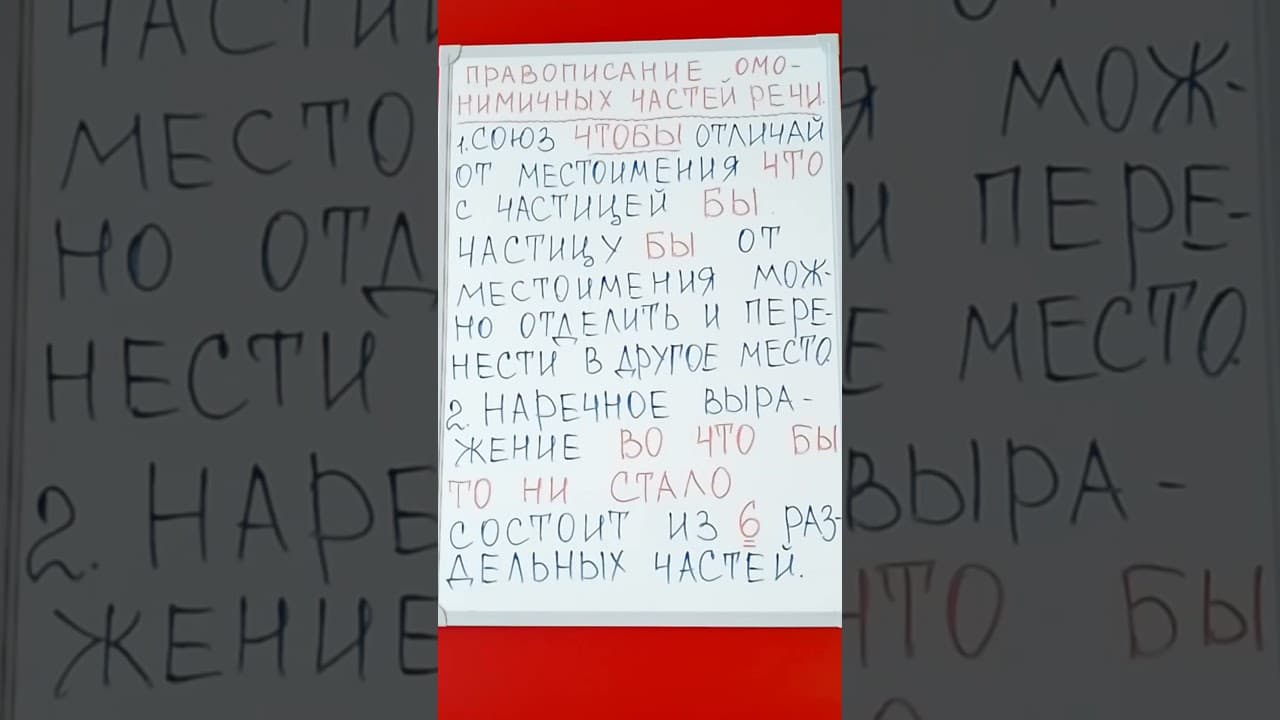 ПРАВОПИСАНИЕ ОМО-
НИМИЧНЫХ ЧАСТЕЙ РЕЧИ.
1. СОЮЗ ЧТОБЫ ОТЛИЧАЙ
ОТ МЕСТОИМЕНИЯ ЧТО
С ЧАСТИЦЕЙ БЫ.
ЧАСТИЦУ БЫ ОТ
МЕСТОИМЕНИЯ МОЖ-
НО ОТДЕЛИТЬ И ПЕРЕ-
НЕСТИ В ДРУГОЕ МЕСТО.
2. НАРЕЧНОЕ ВЫРА-
ЖЕНИЕ ВО ЧТО БЫ
ТО НИ СТАЛО
СОСТОИТ ИЗ 6 РАЗ-
ДЕЛЬНЫХ ЧАСТЕЙ.